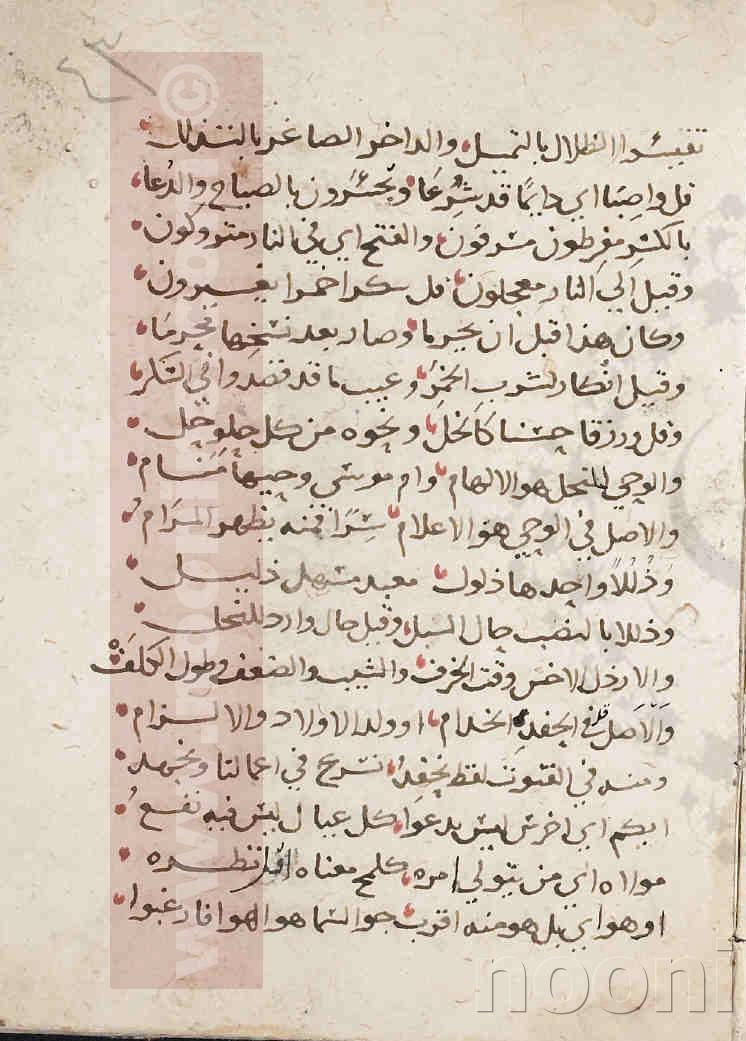 ٤٣
تفيئوا الظلال بالتميل والداخر الصاغر بالتذلل
قل واصبا اي دايما قد شرعا ويجئرون بالصياح والدعا
بالكسر مفرطون مسرفون والفتح اي في النار متروكون
وقيل الى النار معجلون قل سكرا خمرا يفسرون
وكان هذا قبل ان يحرما وصار بعد نسخها محرما
وقيل انكار لشرب الخمر وعيب ما قد قصدوا في السكر
وقل ورزقا حسنا كالخل ونحوه من كل حلو حل
والوحي للنحل هو الالهام وام موسى وحيها منام
والاصل في الوحي هو الاعلام سرا فمنه يظهر المرام
وذللا واحدها ذلول معبد مسهل ذليل
وذللا بالنصب حال السبل وقيل حال وارد للنحل
والارذل الاخس وقت الخرف والشيب والضعف وطول الكلف
والاصل قل في الحفد الخدام او ولد الاولاد والالزام
ومنه في القنوت لفظ نحفد نسرع في اعمالنا ونجهد
ابكم اي اخرس ليس يدعوا كل عيال ليس فيه نفع
مولاه اي من يتولي امره كلمح معناه اقل نظره
او هو اي بل هو منه اقرب جو السما هو الهوا فارغبوا
www.nooni
nooni